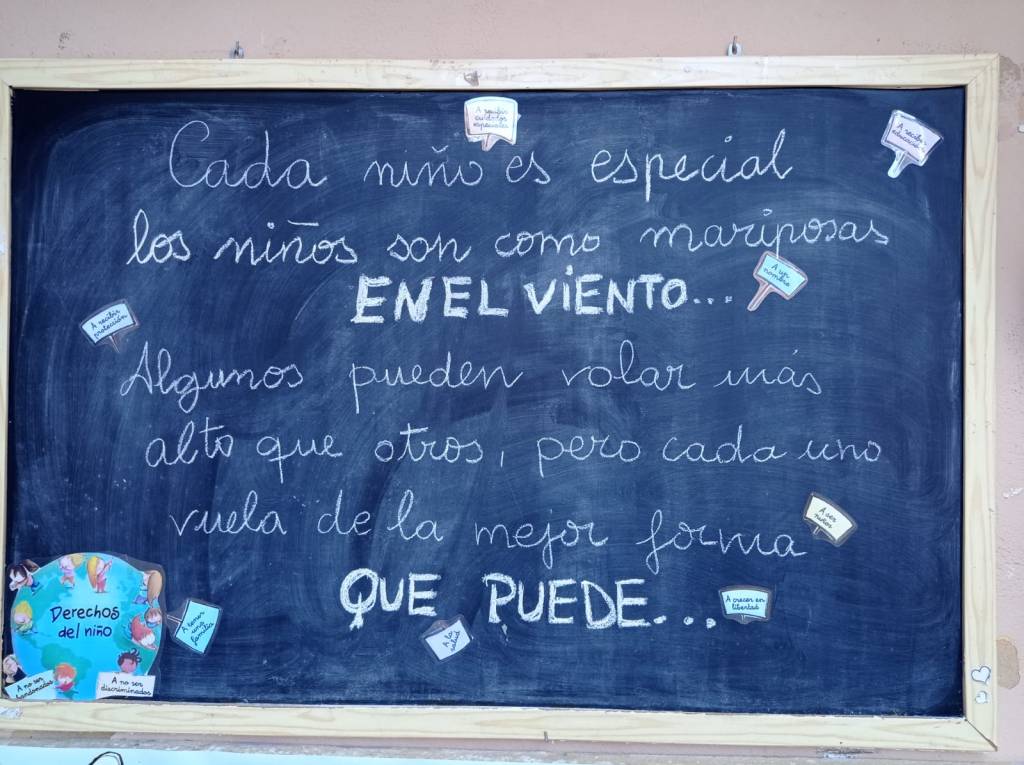 A recibir
cuidados
especiales
A recibir
educación
Cada niño es especial
los niños son como mariposas
A un
nombre
EN EL VIENTO...
A recibir
protección
Algunos pueden volar más
alto que otros, pero cada uno
vuela de la mejor forma
A ser
niños
QUE PUEDE...
A crecer en
libertad
Derechos
del niño
A tener
una
familia
A la
salud
A no ser
bandonados
A no ser
discriminados